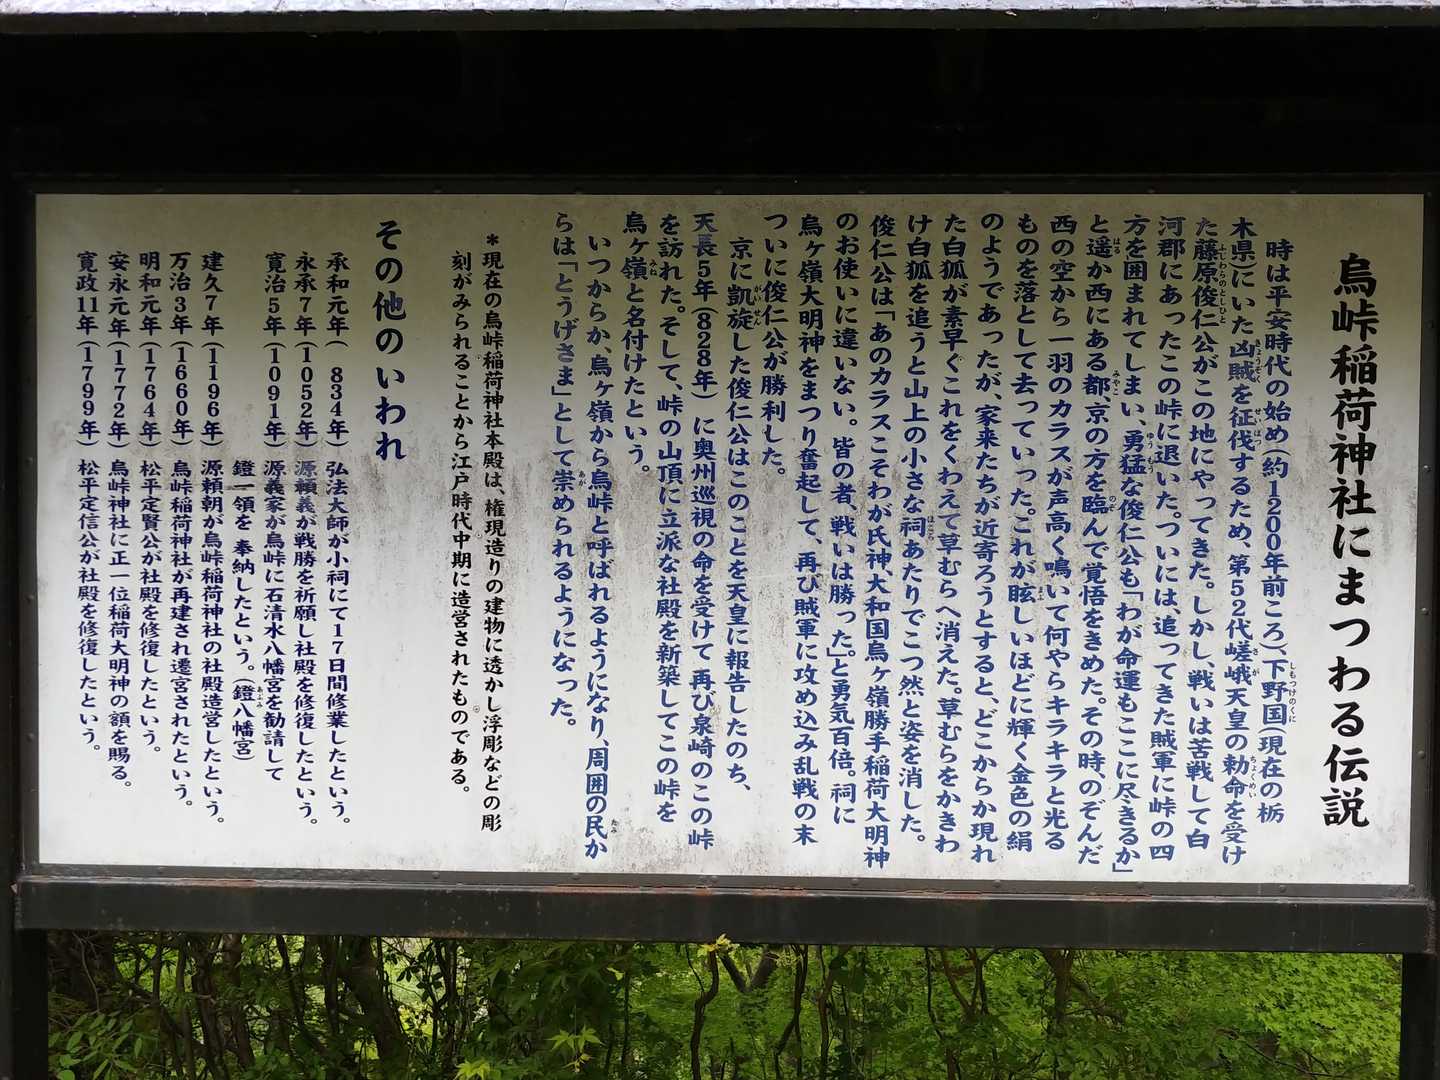 烏峠稲荷神社にまつわる伝説
時は平安時代の始め(約1200年前ころ)、下野国(現在の栃
木県)にいた凶賊を征伐するため、第52代嵯峨天皇の勅命を受け
た藤原俊仁公がこの地にやってきた。しかし、戦いは苦戦して白
河郡にあったこの峠に退いた。ついには、追ってきた賊軍に峠の四
方を囲まれてしまい、勇猛な俊仁公も「わが命運もここに尽きるか」
と遥か西にある都、京の方を臨んで覚悟をきめた。その時、のぞんだ
西の空から一羽のカラスが声高く鳴いて何やらキラキラと光る
ものを落として去っていった。これが眩しいほどに輝く金色の絹
のようであったが、家来たちが近寄ろうとすると、どこからか現れ
た白狐が素早くこれをくわえて草むらへ消えた。草むらをかきわ
け白狐を追うと山上の小さな祠あたりでこつ然と姿を消した。
俊仁公は「あのカラスこそわが氏神、大和国烏ヶ嶺勝手稲荷大明神
のお使いに違いない。皆の者、戦いは勝った。」と勇気百倍。祠に
烏ヶ嶺大明神をまつり奮起して、再び賊軍に攻め込み乱戦の末
ついに俊仁公が勝利した。
京に凱旋した俊仁公はこのことを天皇に報告したのち、
天長5年(828年)に奥州巡視の命を受けて再び泉崎のこの峠
を訪れた。そして、峠の山頂に立派な社殿を新築してこの峠を
烏ヶ嶺と名付けたという。
いつからか、烏ヶ嶺から烏峠と呼ばれるようになり、周囲の民か
らは「とうげさま」として崇められるようになった。
＊現在の烏峠稲荷神社本殿は、権現造りの建物に透かし浮彫などの彫
刻がみられることから江戸時代中期に造営されたものである。
その他のいわれ
承和元年( 834年) 弘法大師が小祠にて17日間修業したという。
永承7年(1052年) 源頼義が戦勝を祈願し社殿を修復したという。
寛治5年(1091年) 源義家が烏峠に石清水八幡宮を勧請して
鐙一領を 奉納したという。(鐙八幡宮)
建久7年(1196年) 源頼朝が烏峠稲荷神社の社殿造営したという。
万治3年(1660年) 烏峠稲荷神社が再建され遷宮されたという。
明和元年(1764年) 松平定賢公が社殿を修復したという。
安永元年(1772年) 烏峠神社に正一位稲荷大明神の額を賜る。
寛政11年(1799年) 松平定信公が社殿を修復したという。